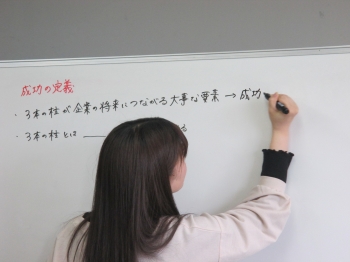 成功の定義
・3本の柱が企業の将来につながる大事な要素→成功
・3本の柱とは ＿＿＿ る